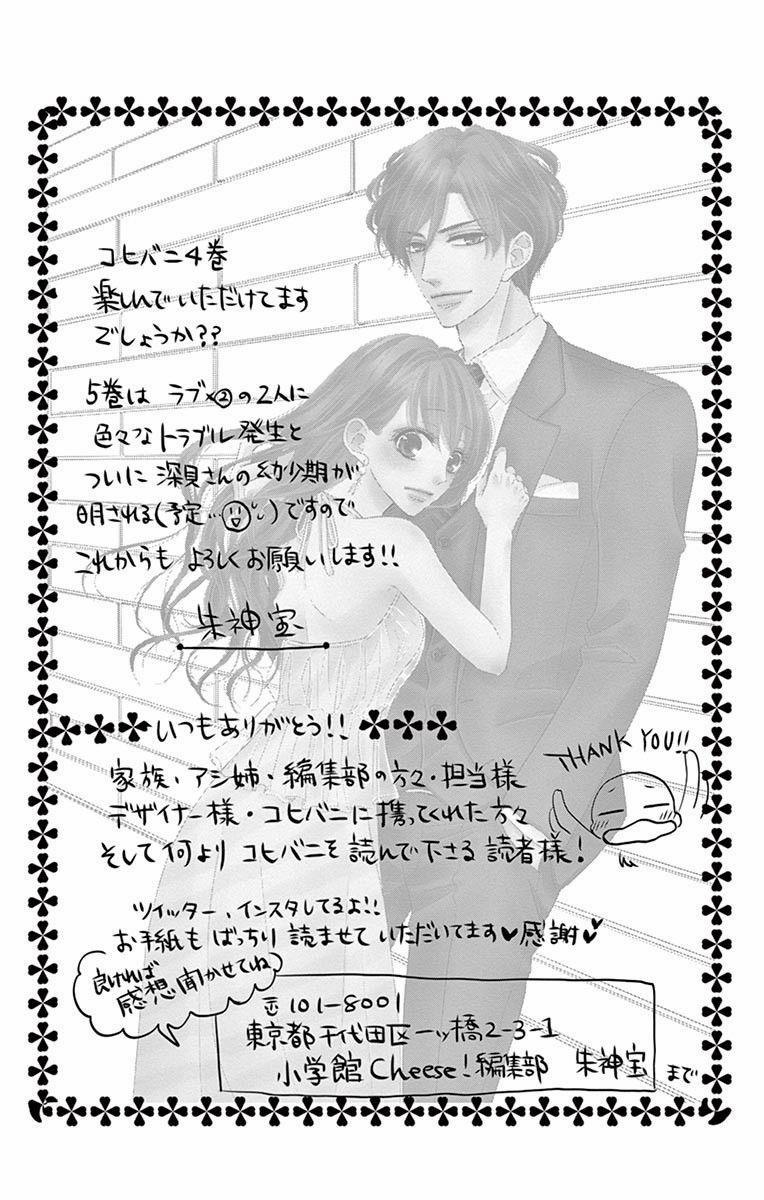 コヒバニ4巻
楽しんでいただけてます
でしょうか??
5巻は ラブ×②の2人に
色々なトラブル発生と
ついに 深見さんの幼少期が
明される(予定…)ですので
これからも よろしくお願いします!!
朱神宝
いつもありがとう!!
THANK YOU!!
家族・アシ姉・編集部の方々・担当様
デザイナー様・コヒバニに携ってくれた方々
そして何より コヒバニを読んで下さる 読者様!
ツイッター、インスタしてるよ!!
お手紙も ばっちり 読ませて いただいてます♥感謝♥
良ければ
感想聞かせてね
〒101-8001
東京都千代田区一ッ橋2-3-1
小学館 Cheese!編集部 朱神宝 まで